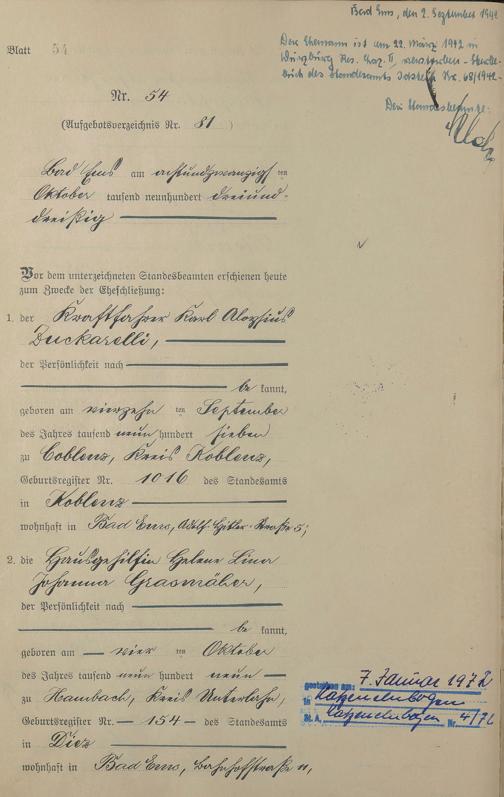 Bad Ems, den 2. September 1942
Der Ehemann ist am 22. März 1942 in
Würzburg Res. Laz. II, verstorben - Sterbe-
buch des Standesamts Nr. 68/1942-
Der Standesbeamte:
Blatt 54
Nr. 54
(Aufgebotsverzeichnis Nr. 81)
Bad Ems am achtundzwanzigsten
Oktober tausend neunhundert dreiund-
dreißig
Vor dem unterzeichneten Standesbeamten erschienen heute
zum Zwecke der Eheschließung:
1. der Kraftfahrer Karl Aloysius
Zuckarelli,
der Persönlichkeit nach
be kannt,
geboren am vierzehn ten September
des Jahres tausend neun hundert sieben
zu Coblenz, Kreis Koblenz,
Geburtsregister Nr. 1016 des Standesamts
in Koblenz
wohnhaft in Bad Ems, Adolf-Hitler-Straße 5;
2. die Hausgehilfin Helene Lina
Johanna Grasmäher,
der Persönlichkeit nach
be kannt,
geboren am vier ten Oktober
des Jahres tausend neun hundert neun
zu Hambach, Kreis Unterlahn,
Geburtsregister Nr. 154 des Standesamts
in Diez
wohnhaft in Bad Ems, Bahnhofstraße 11,
gestorben am: 7. Januar 1972
in Katzenelnbogen
St. A. Katzenelnbogen Nr. 4/72